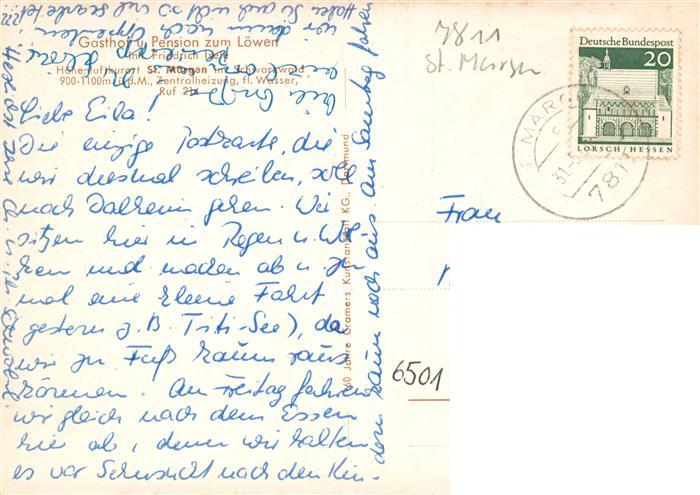 Gasthof u. Pension zum Löwen
Inh. Friedrich
Höhenluftkurort St. Märgen im Schwarzwald
900-1100m ü.d.M., Zentralheizung, fl. Wasser,
Ruf 21
Liebe Eila!
Die einzige Postkarte, die
wir diesmal schreiben, soll
nach Dalheim gehen. Wir
sitzen hier in Regen u. Wol
ken und machen ab u. zu
mal eine kleine Fahrt
(gestern z.B. Titi-See), da
wir zu Fuß kaum raus
können. Am Freitag fahren
wir gleich nach dem Essen
hier ab, denn wir halten
es vor Sehnsucht nach den Kin-
dern kaum noch aus. Am Samstag fahren
wir dann nach
Viele Grüße
60 Jahre Cramers Kunstanstalt KG., Dortmund
7811
St. Märgen
Deutsche Bundespost
20
LORSCH/HESSEN
MÄRG
31.5
7811
Frau
6501